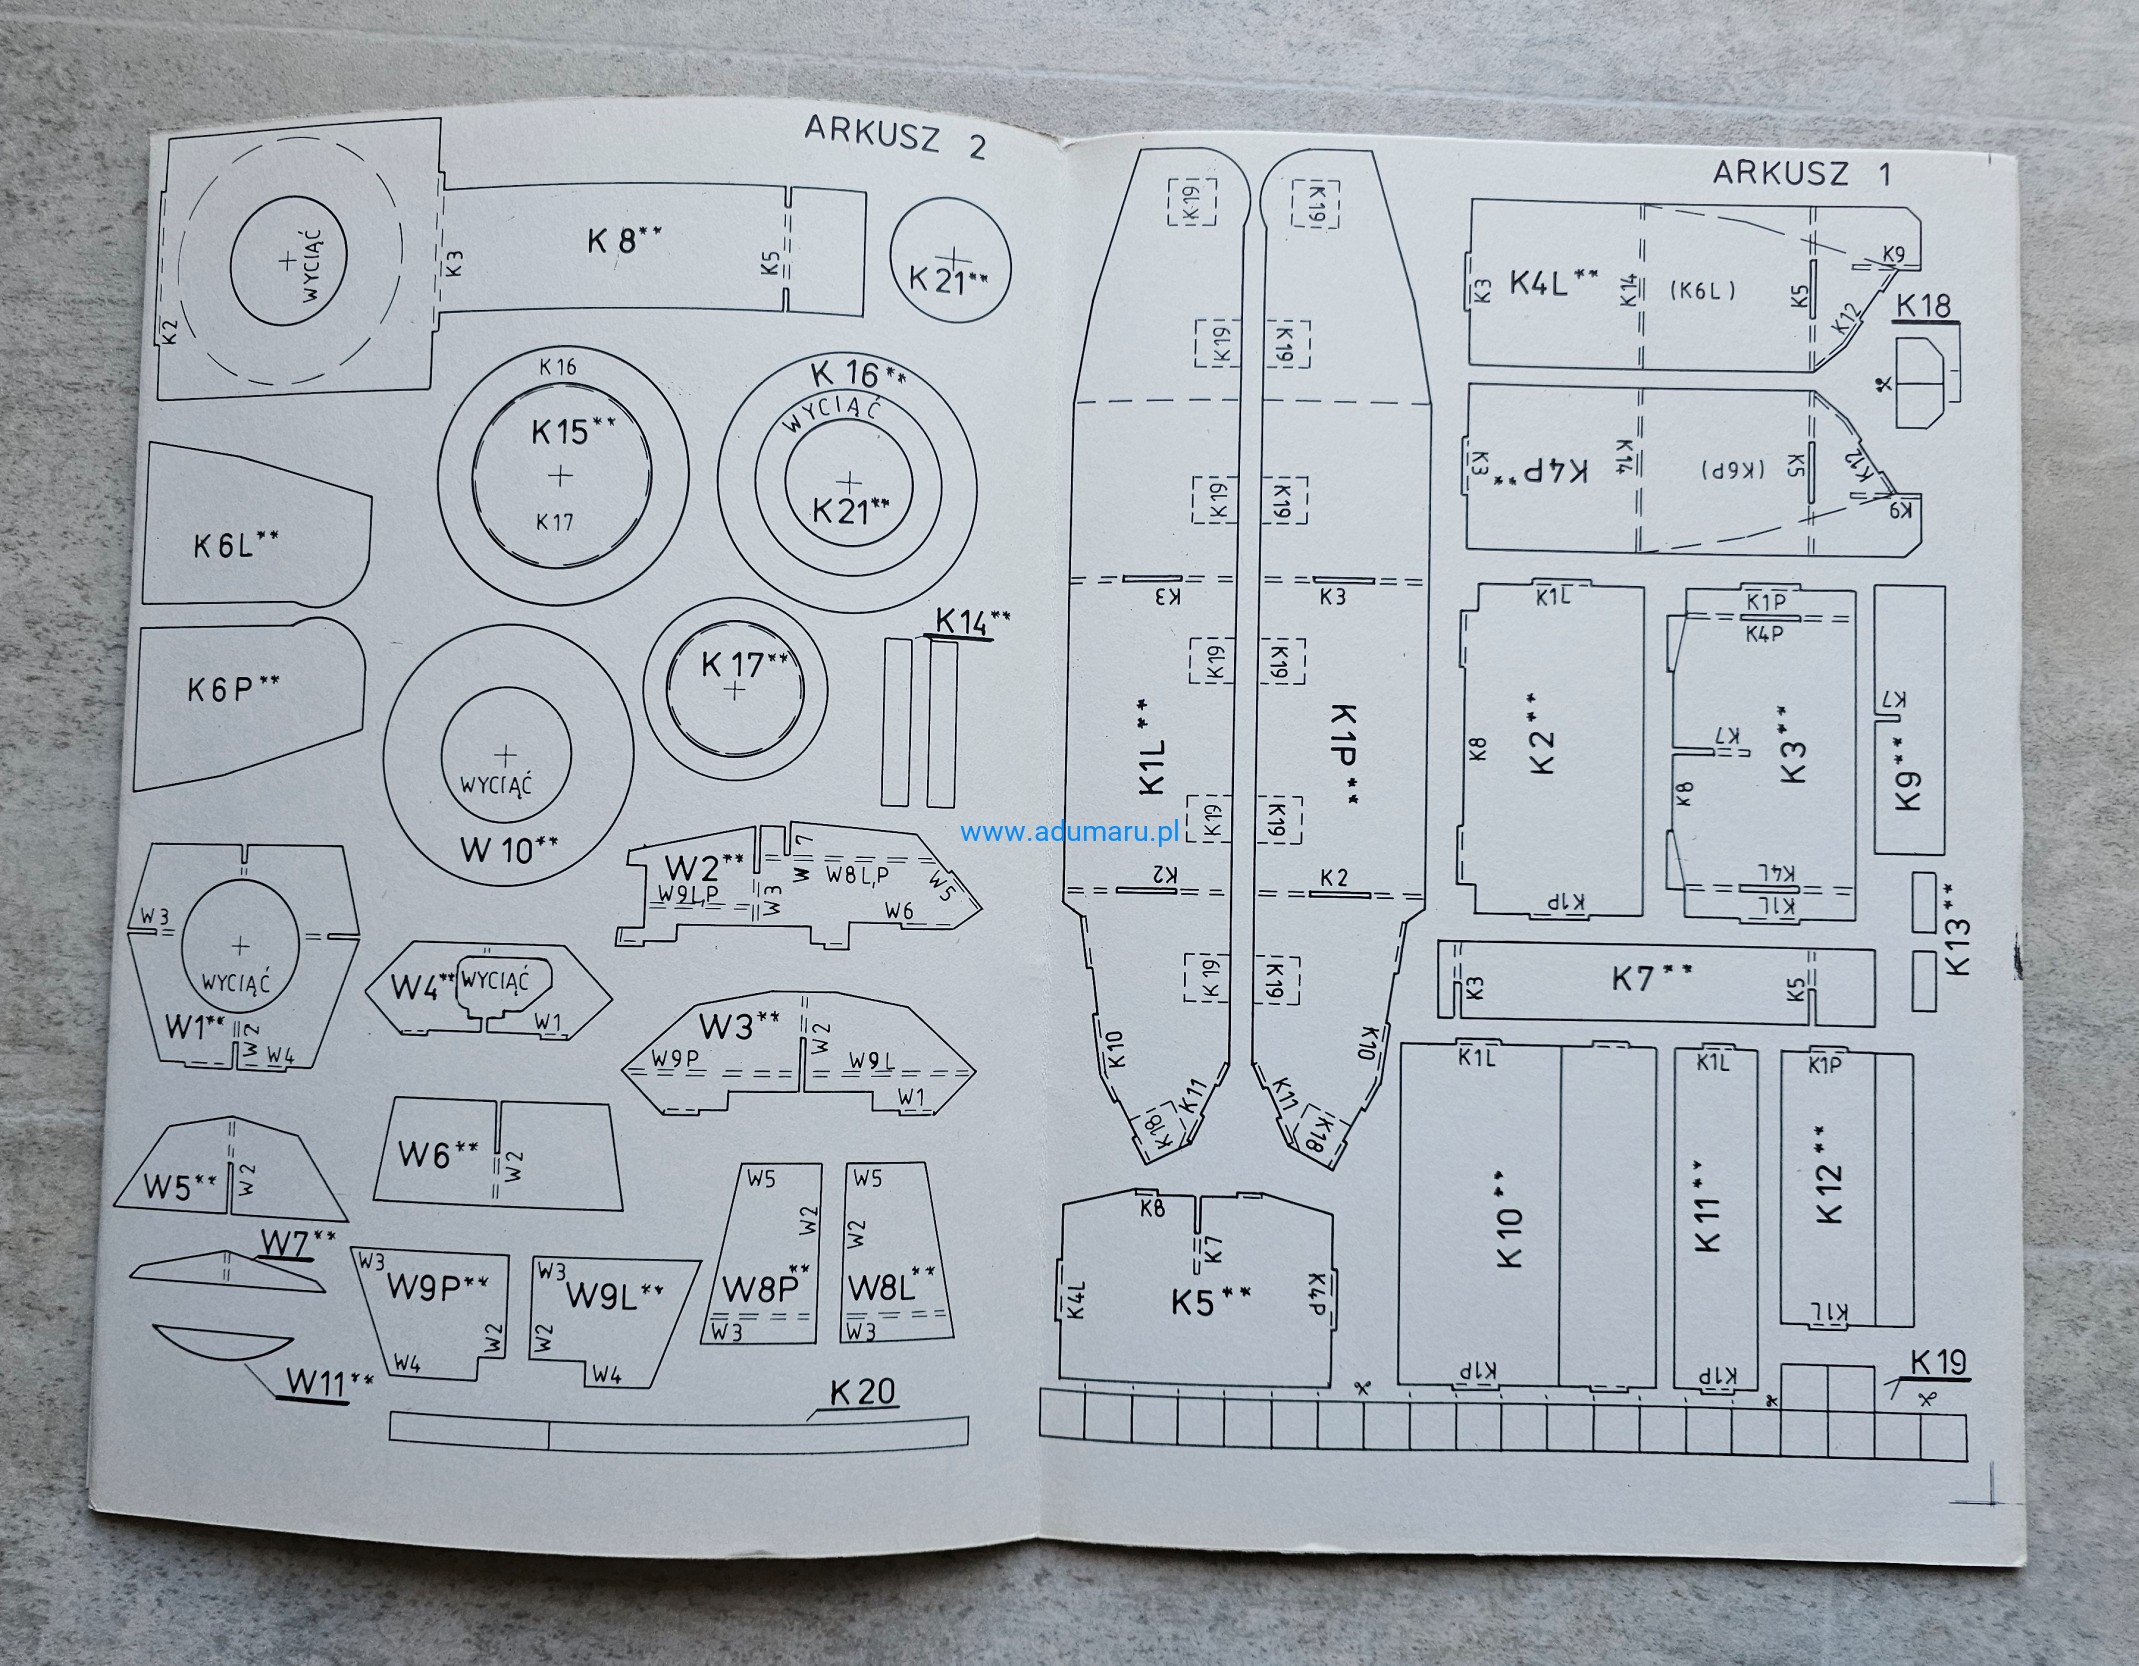 ARKUSZ 2
K2
WYCIĄĆ
K3
K 8**
K5
K 21**
K 16
K 15**
K 17
K 16**
WYCIĄĆ
K 21**
K 6L**
K 6P**
WYCIĄĆ
W 10**
K 17**
K 14**
W3
WYCIĄĆ
W1**
W2
W4
W2**
W9L,P
W3
W7
W8L,P
W5
W6
W4**
WYCIĄĆ
W1
W3**
W2
W9P
W9L
W1
W5**
W2
W6**
W2
W7**
W11**
W3
W9P**
W2
W4
W3
W9L**
W2
W4
W5
W2
W8P**
W3
W5
W2
W8L**
W3
K 20
www.adumaru.pl
ARKUSZ 1
K19
K19
K19
K19
K19
K19
K3
K3
K19
K19
K1L**
K1P**
K19
K19
K2
K2
K19
K19
K10
K10
K11
K11
K18
K18
K3
K4L**
K14
(K6L)
K5
K12
K9
K18
K3
K4P**
K14
(K6P)
K5
K12
K9
K1L
K8
K2**
K1P
K1P
K4P
K7
K8
K3**
K4L
K1L
K7
K9**
K13**
K3
K7**
K5
K1L
K10**
K1P
K1L
K11**
K1P
K1P
K12**
K1L
K8
K7
K4L
K5**
K4P
K19